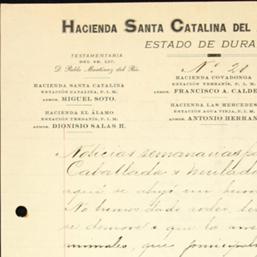 HACIENDA SANTA CATALINA DEL
ESTADO DE DURA
TESTAMENTARIA
DEL SR. LIC.
D. Pablo Martínez del Río.
HACIENDA SANTA CATALINA
ESTACION CATALINA, F. I. M.
ADMOR. MIGUEL SOTO.
HACIENDA EL ÁLAMO
ESTACION YERBANÍS, F. I. M.
ADMOR. DIONISIO SALAS H.
Nº 28
HACIENDA COVADONGA
ESTACION YERBANÍS, F. I. M.
ADMOR. FRANCISCO A. CALDE
HACIENDA LAS MERCEDE
ESTACION AGUA VIEJA, F. I. M.
ADMOR. ANTONIO HERRAN
Noticias semanarias
Caballada y mulada
aquí se
No hemos dado
se demora que la